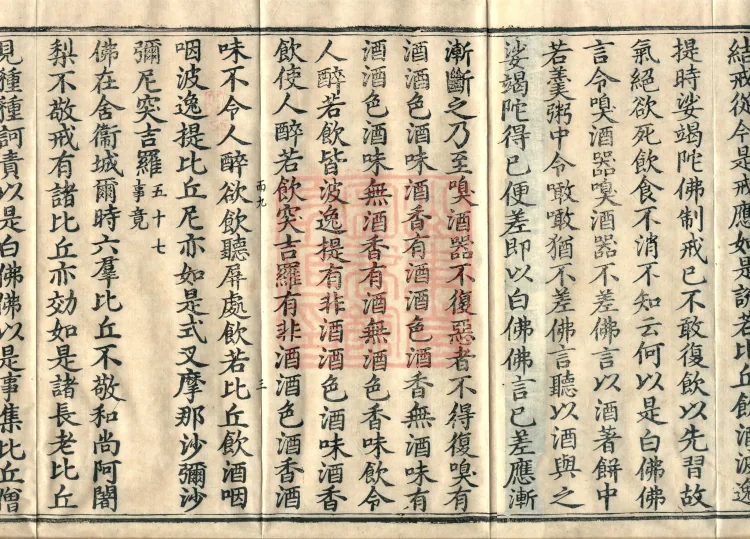 結戒從今是戒應如是說若比丘飲酒波逸
提時娑竭陀佛制戒已不敢復飲以先習故
氣絕欲死飲食不消不知云何以是白佛佛
言令嗅酒器嗅酒器不差佛言以酒著餅中
若羹粥中令噉噉猶不差佛言聽以酒與之
娑竭陀得已便差即以白佛佛言已差應漸
漸斷之乃至嗅酒器不復惡者不得復嗅有
酒酒色酒味酒香有酒酒色酒香無酒味有
酒酒色酒味無酒香有酒無酒色香味飲令
人醉若飲皆波逸提有非酒酒色酒味酒香
飲使人醉若飲突吉羅有非酒酒色酒香酒
味不令人醉欲飲聽屏處飲若比丘飲酒咽
咽波逸提比丘尼亦如是式叉摩那沙彌沙
彌尼突吉羅五十七事竟
佛在舍衞城爾時六羣比丘不敬和尚阿闍
梨不敬戒有諸比丘亦効如是諸長老比丘
見種種訶責以是白佛佛以是事集比丘僧
而九
三